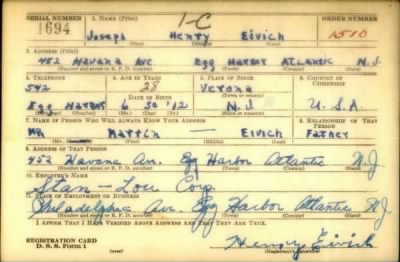 SERIAL NUMBER 1. NAME (Print) ORDER NUMBER
1694 1-C 1510
Joseph Henry Eivich
(First) (Middle) (Last)
2. ADDRESS (Print)
452 Havana Ave Egg Harbor Atlantic N.J.
(Number and street or R. F. D. number) (Town) (County) (State)
3. TELEPHONE 4. AGE IN YEARS 5. PLACE OF BIRTH 6. COUNTRY OF CITIZENSHIP
542 28 Verona
DATE OF BIRTH
Egg Harbor 6 30 '12 N.J. U.S.A
7. NAME OF PERSON WHO WILL ALWAYS KNOW YOUR ADDRESS 8. RELATIONSHIP OF THAT PERSON
MR. Martin — Eivich Father
9. ADDRESS OF THAT PERSON
452 Havana Av. Egg Harbor Atlantic N.J
(Number and street or R. F. D. number) (Town) (County) (State)
10. EMPLOYER'S NAME
Stan-Lou Corp.
11. PLACE OF EMPLOYMENT OR BUSINESS
Philadelphia Av. Egg Harbor Atlantic N.J
(Number and street or R. F. D. number) (Town) (County) (State)
I AFFIRM THAT I HAVE VERIFIED ABOVE ANSWERS AND THAT THEY ARE TRUE.
REGISTRATION CARD
D. S. S. Form 1 (over) Henry Eivich
(Registrant's signature)